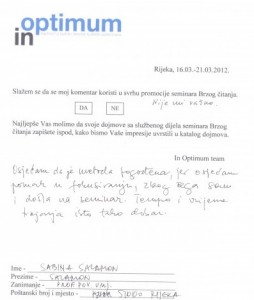 optimum
in
Rijeka, 16.03.-21.03.2012.
Slažem se da se moj komentar koristi u svrhu promocije seminara Brzog čitanja.
DA NE Nije mi važno.
Najljepše Vas molimo da svoje dojmove sa službenog dijela seminara Brzog
čitanja zapišete ispod, kako bismo Vaše impresije uvrstili u katalog dojmova.
In Optimum team
Osjećam da je metoda pogođena, jer osjećam
pomak u fokusiranju, zbog čega sam
i došla na seminar. Tempo i vrijeme
trajanja isto tako dobar.
Ime - SABINA SALAMON
Prezime - SALAMON
Zanimanje - PROF. POV. UMJ.
Poštanski broj i mjesto - RIJEKA